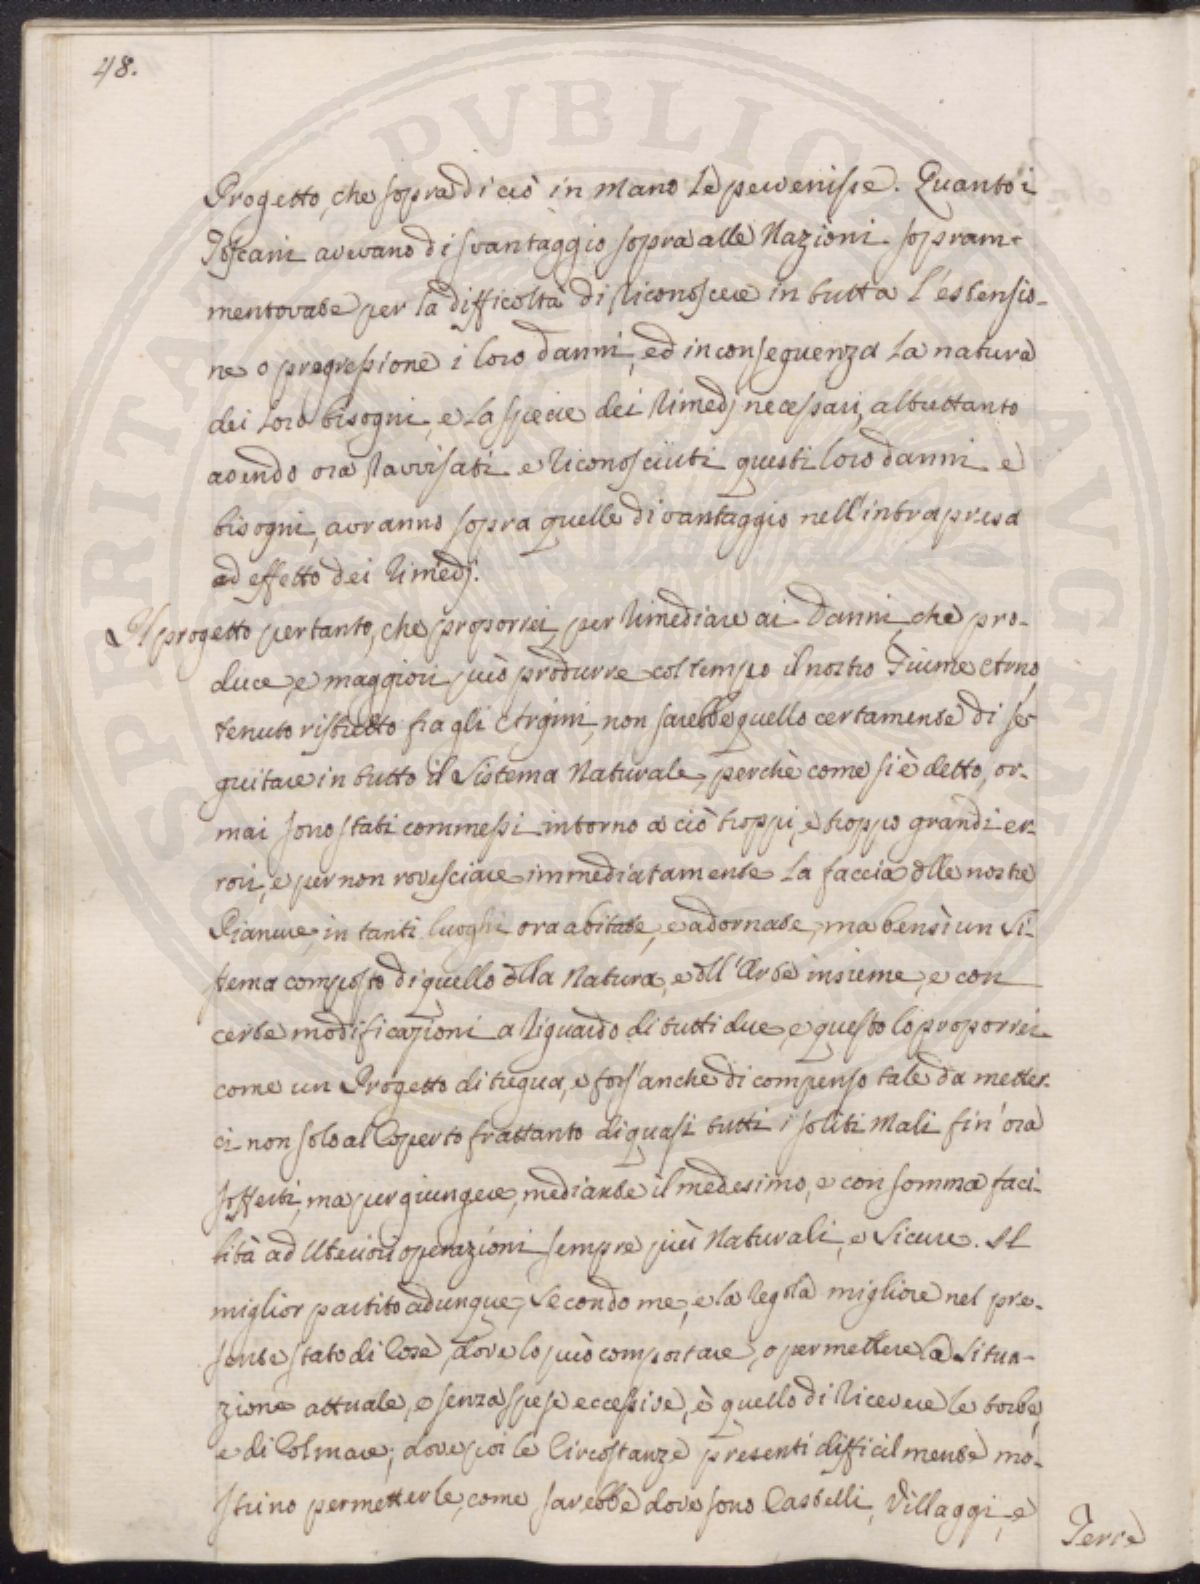 48.
Progetto, che sopra di ciò in mano Le pervenisse. Quanto i
Toscani avevano di svantaggio sopra alle Nazioni sopram-
mentovate per la difficoltà di riconoscere in tutta l'estensio-
ne o progressione i loro danni, ed in conseguenza la natura
dei loro bisogni, e la specie dei rimedj necessari, altrettanto
avendo ora ravvisati e riconosciuti questi loro danni e
bisogni, avranno sopra quelle di vantaggio nell'intrapresa
ed effetto dei rimedj.
Il progetto pertanto, che proporrei per rimediare ai Danni, che pro-
duce, e maggiori può produrre col tempo il nostro Fiume Arno
tenuto ristretto fra gli Argini, non sarebbe quello certamente di se-
guitare in tutto il Sistema Naturale, perchè come si è detto, or-
mai sono stati commessi intorno a ciò troppi, e troppo grandi er-
rori, e per non rovesciare immediatamente la faccia dlle nostre
Pianure, in tanti luoghi ora abitate, e adornate, ma bensì un Si-
stema composto di quello dlla Natura, e dll'Arte insieme, e con
certe modificazioni a riguardo di tutti due, e questo lo proporrei
come un Progetto di tregua, e fors'anche di compenso tale da metter-
ci non solo al Coperto frattanto di quasi tutti i soliti Mali fin'ora
sofferti, ma per giungere, mediante il medesimo, e con somma faci-
lità ad Ulteriori operazioni sempre più Naturali, e Sicure. Il
miglior partito adunque, Secondo me, e la regola migliore nel pre-
sente stato di Cose, dove lo può comportare, o permettere la Situa-
zione attuale, e senza spese eccessive, è quello di ricevere le torbe,
e di Colmare; dove poi le Circostanze presenti difficilmente mo-
strino permetterle, come sarebbe dove sono Castelli, Villaggi, e
Terre